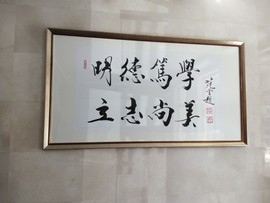 明德篤學
立志尚美